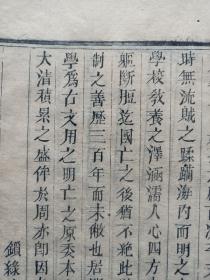 時無流賊之蹂躪海內而明之
學校教養之澤涵濡人心四方
軀斷脰迄國亡之後猶不絕此
制之善歷三百年而未敝也居
學爲右文用之明亡之原委本
大清積累之盛侔於周亦卽因
鎖綠